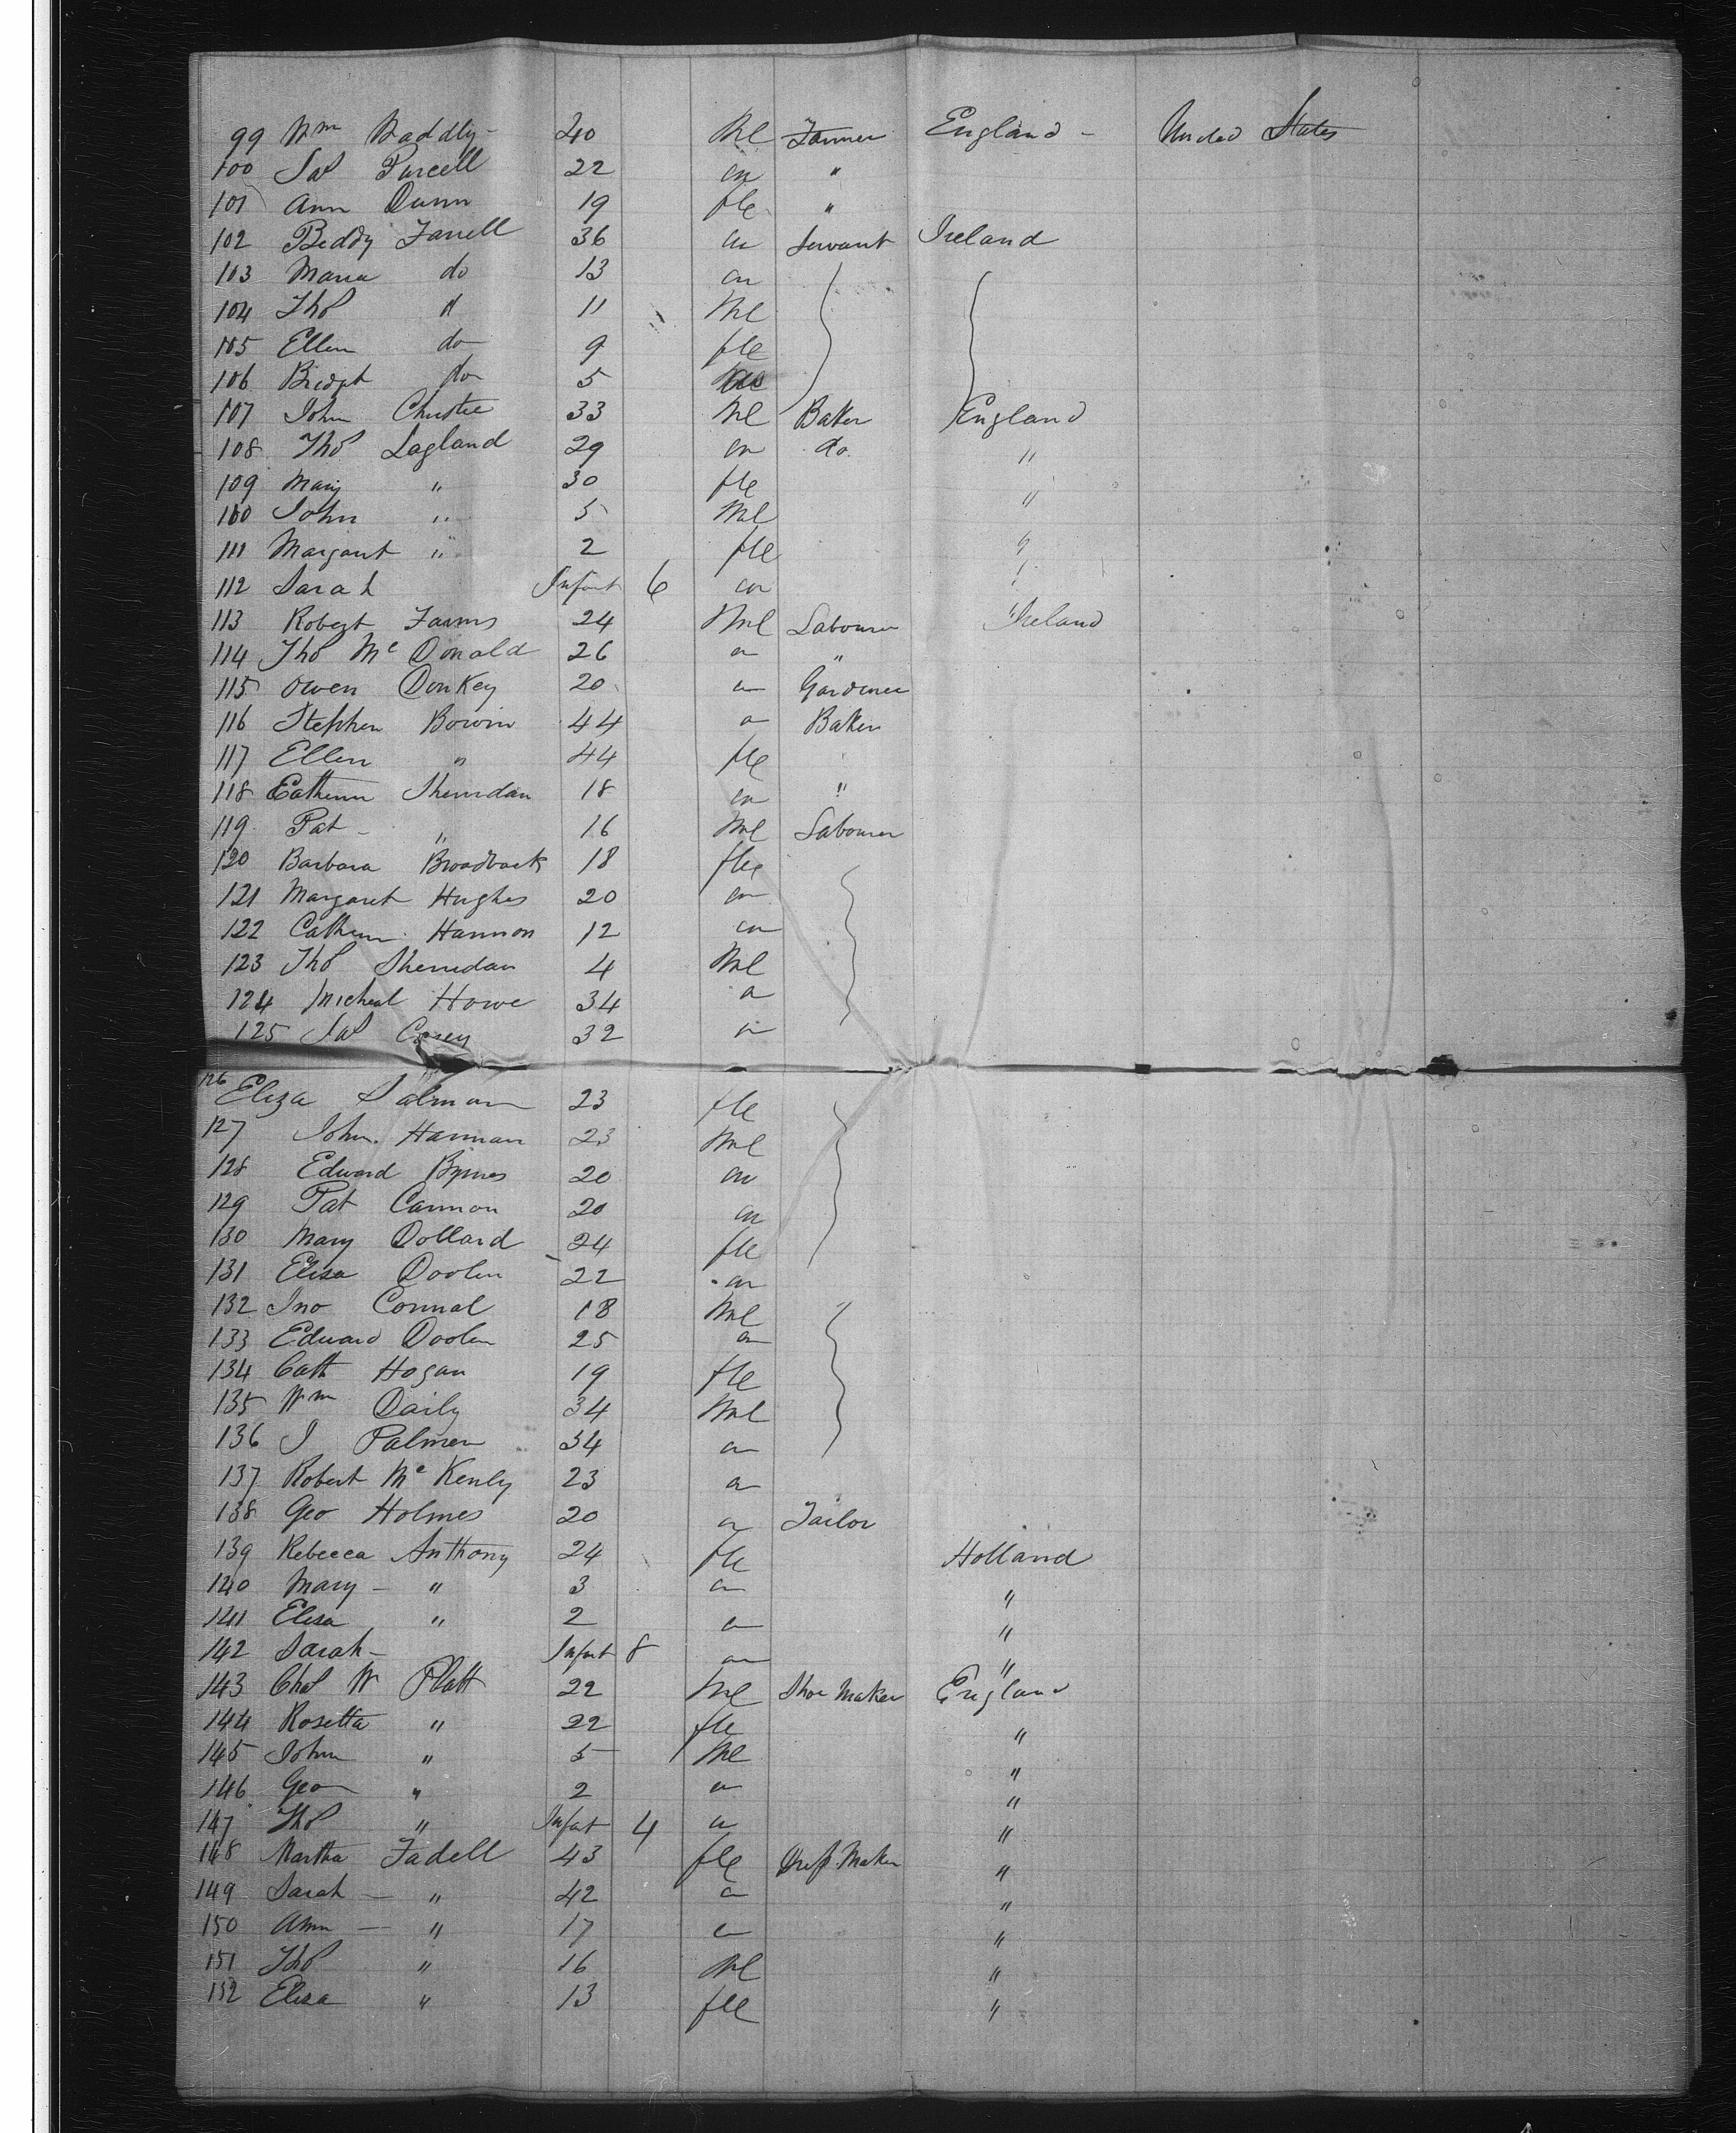 99 Wm Waddly - 20 Ml Farmer England - United States
100 Jas Purcell 22 " "
101 Ann Dunn 19 fle "
102 Biddy Farrell 36 " Servant Ireland
103 Maria do 13 "
104 Thos d 11 Ml
105 Ellen do 9 fle
106 Bridgt do 5
107 John Christie 33 Ml Baker England
108 Thos Lagland 29 " do "
109 Mary " 30 fle "
110 John " 5 Ml
111 Margaret " 2 fle "
112 Sarah Infant 6 " "
113 Robert Farms 24 Ml Labourer Ireland
114 Thos Mc Donald 26 " "
115 Owen Donkey 20 " Gardener
116 Stephen Bowin 44 " Baker
117 Ellen " 44 fle
118 Catherin Sherridan 18 " "
119 Pat - " 16 Ml Labourer
120 Barbara Broadback 18 fle
121 Margaret Hughes 20 "
122 Cathern Hannon 12 "
123 Thos Sherridan 4 Ml
124 Micheal Howe 34 "
125 Jas Casey 32 "
126 Eliza Salmon 23 fle
127 John Hannan 23 Ml
128 Edward Byrnes 20 "
129 Pat Cannon 20 "
130 Mary Dollard 24 fle
131 Elisa Doolen 22 "
132 Jno Connal 18 Ml
133 Edward Doolen 25 "
134 Cath Hogan 19 fle
135 Wm Daily 34 Ml
136 J Palmer 34 "
137 Robert Mc Kenly 23 "
138 Geo Holmes 20 " Tailor
139 Rebecca Anthony 24 fle Holland
140 Mary - " 3 " "
141 Elisa " 2 " "
142 Sarah - Infant 8 " "
143 Chas W Platt 22 Ml Shoe Maker England
144 Rosetta " 22 fle "
145 John " 5 Ml "
146 Geo " 2 " "
147 Thos " Infant 4 " "
148 Martha Fadell 43 fle Dress Maker "
149 Sarah - " 42 " "
150 Ann - " 17 " "
151 Thos " 16 Ml "
152 Elisa " 13 fle "